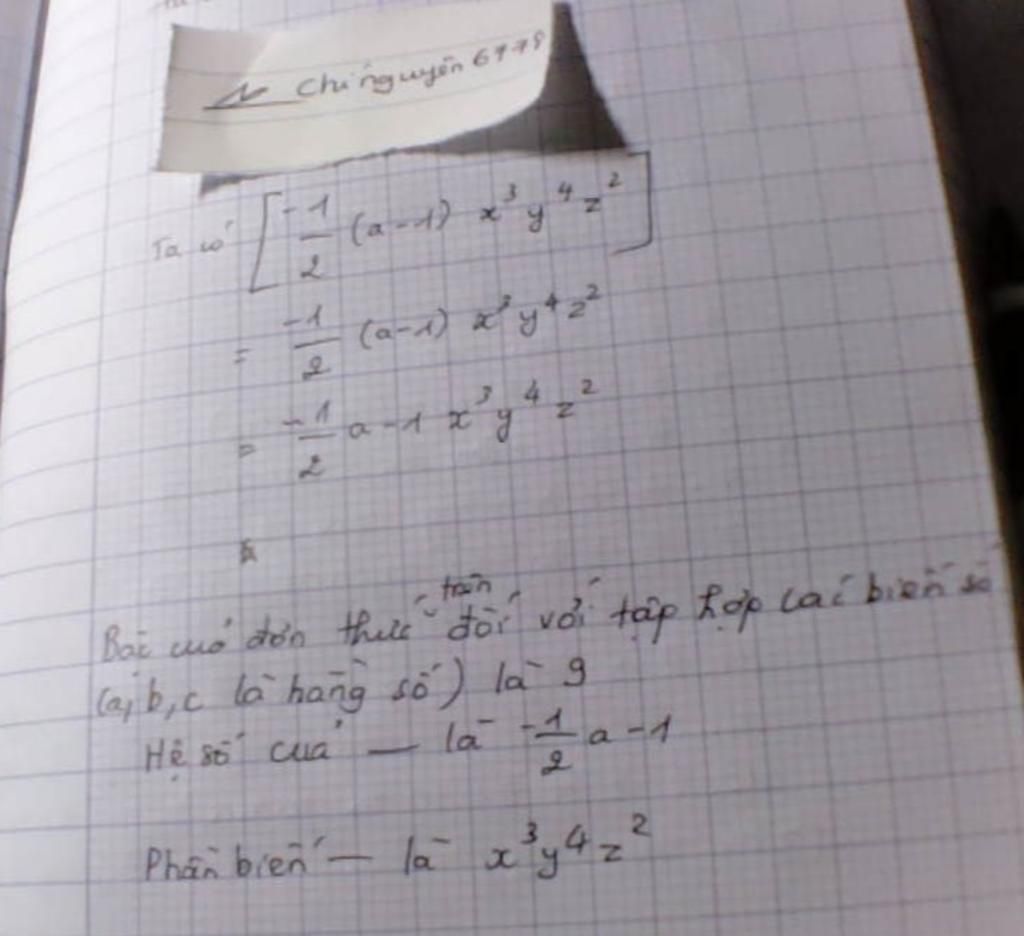 Chinguyên 6779
Ta có [-1/2 (a-1) x³y⁴z²]
= -1/2 (a-1) x³y⁴z²
= -1/2 a-1 x³y⁴z²
Bậc cuả đơn thức trên đối với tập hợp các biến số
(a, b, c là hằng số) là 9
Hệ số cuả — là -1/2 a -1
Phần biến — là x³y⁴z²